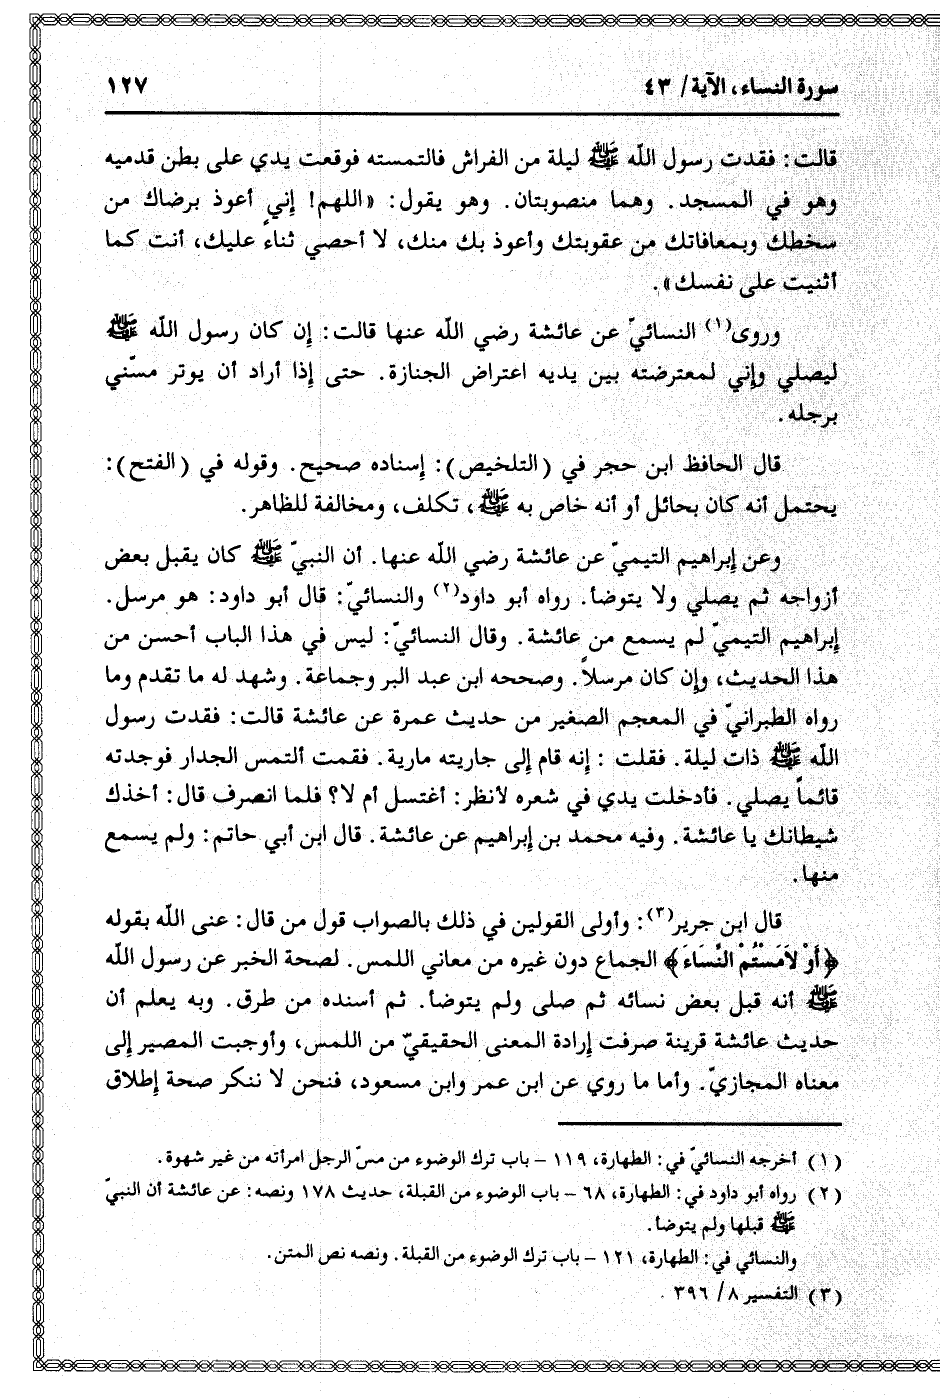 سورة النساء، الآية/ ٤٣
١٢٧
قالت: فقدت رسول اللّه ﷺ ليلة من الفراش فالتمسته فوقعت يدي على بطن قدميه
وهو في المسجد. وهما منصوبتان. وهو يقول: «اللهم! إني أعوذ برضاك من
سخطك وبمعافاتك من عقوبتك وأعوذ بك منك، لا أحصي ثناءً عليك، أنت كما
أثنيت على نفسك».
وروى(١) النسائيّ عن عائشة رضي اللّه عنها قالت: إن كان رسول اللّه ﷺ
ليصلي وإني لمعترضته بين يديه اعتراض الجنازة. حتى إذا أراد أن يوتر مسّني
برجله.
قال الحافظ ابن حجر في (التلخيص): إسناده صحيح. وقوله في (الفتح):
يحتمل أنه كان بحائل أو أنه خاص به ﷺ، تكلف، ومخالفة للظاهر.
وعن إبراهيم التيميّ عن عائشة رضي اللّه عنها. أن النبيّ ﷺ كان يقبل بعض
أزواجه ثم يصلي ولا يتوضأ. رواه أبو داود(٢) والنسائيّ: قال أبو داود: هو مرسل.
إبراهيم التيميّ لم يسمع من عائشة. وقال النسائيّ: ليس في هذا الباب أحسن من
هذا الحديث، وإن كان مرسلاً. وصححه ابن عبد البر وجماعة. وشهد له ما تقدم وما
رواه الطبرانيّ في المعجم الصغير من حديث عمرة عن عائشة قالت: فقدت رسول
اللّه ﷺ ذات ليلة. فقلت : إنه قام إلى جاريته مارية. فقمت ألتمس الجدار فوجدته
قائماً يصلي. فأدخلت يدي في شعره لأنظر: أغتسل أم لا؟ فلما انصرف قال: أخذك
شيطانك يا عائشة. وفيه محمد بن إبراهيم عن عائشة. قال ابن أبي حاتم: ولم يسمع
منها.
قال ابن جرير(٣): وأولى القولين في ذلك بالصواب قول من قال: عنى اللّه بقوله
﴿أَوْ لاَمَسْتُمْ النِّسَاءَ﴾ الجماع دون غيره من معاني اللمس. لصحة الخبر عن رسول اللّه
ﷺ أنه قبل بعض نسائه ثم صلى ولم يتوضأ. ثم أسنده من طرق. وبه يعلم أن
حديث عائشة قرينة صرفت إرادة المعنى الحقيقيّ من اللمس، وأوجبت المصير إلى
معناه المجازيّ. وأما ما روي عن ابن عمر وابن مسعود، فنحن لا ننكر صحة إطلاق
(١) أخرجه النسائيّ في: الطهارة، ١١٩ – باب ترك الوضوء من مسّ الرجل امرأته من غير شهوة.
(٢) رواه أبو داود في: الطهارة، ٦٨ – باب الوضوء من القبلة، حديث ١٧٨ ونصه: عن عائشة أن النبيّ
ﷺ قبلها ولم يتوضأ.
والنسائي في: الطهارة، ١٢١ – باب ترك الوضوء من القبلة. ونصه نص المتن.
(٣) التفسير ٨/ ٣٩٦ .